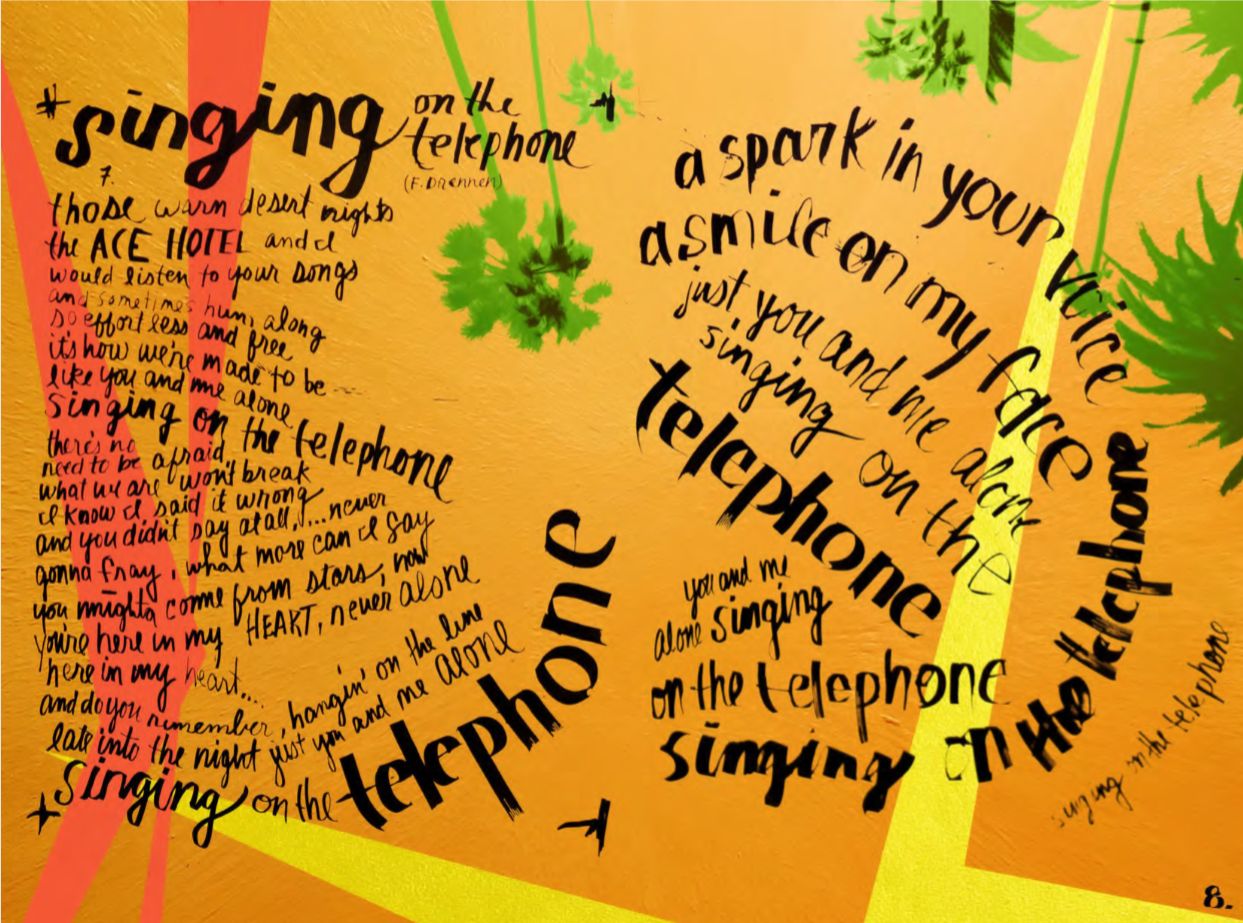 singing on the
telephone
(F. Drennen)
7.
those warm desert nights
the ACE HOTEL and I
would listen to your songs
and sometimes hum along
so effortless and free
it's how we're made to be
like you and me alone
singing on the telephone
there's no
need to be afraid
what we are won't break
I know I said it wrong
and you didn't say at all, I... never
gonna fray, what more can I say
you mighta come from stars, now
you're here in my HEART, never alone
here in my heart...
and do you remember, hangin' on the line
late into the night just you and me alone
singing on the telephone
a spark in your voice
a smile on my face
just you and me alone
singing on the
telephone
you and me
alone singing
on the telephone
singing on the telephone
singing on the telephone
8.